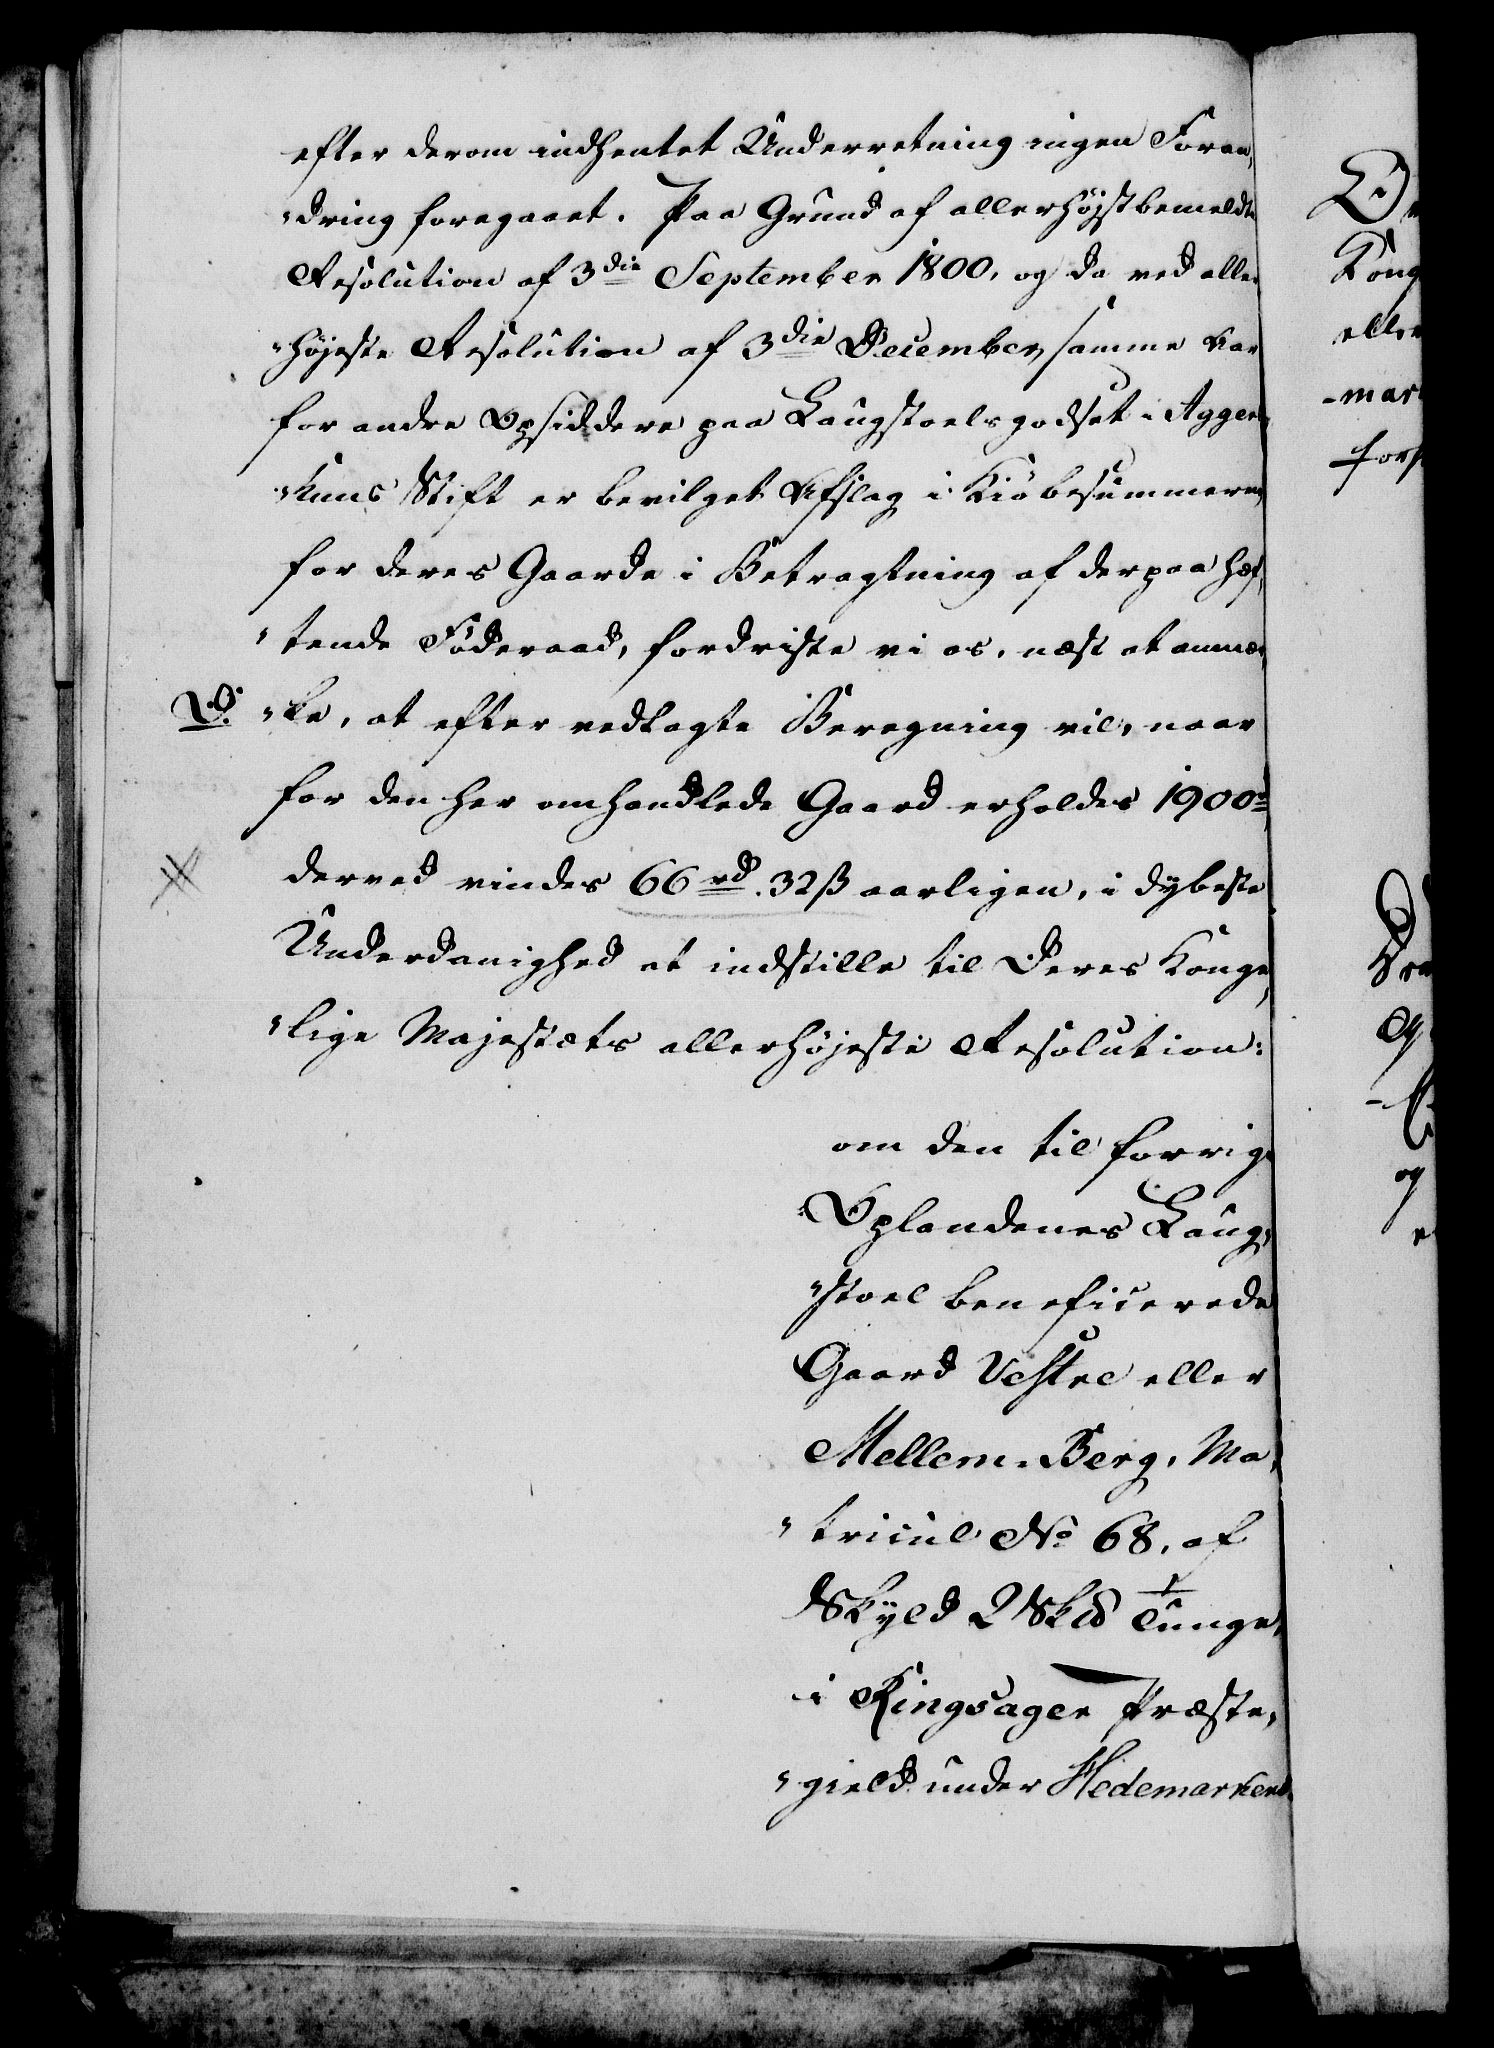 efter derom indhentet Underretning ingen Foran„
„dring foregaaet. Paa Grund af allerhøjstbemeldte
Resolution af 3die September 1800, og da ved aller
„højeste Resolution af 3die December samme Aar
for andre Opsiddere paa Laugstoelsgodset i Agger„
„huus Stift er bevilget Afslag i Kiöbesummerne
for deres Gaarde i Betragtning af derpaa hæf„
„tende Föderaad, fordriste vi os, næst at anmær„
D. „ke, at efter vedlagte Beregning vil, naar
for den her omhandlede Gaard erholdes 1900rd
derved vindes 66rd. 32ß aarligen, i dybeste
Underdanighed at indstille til Deres Konge„
„lige Majestæts allerhøjeste Resolution:
om den til forrige
Oplandenes Laug„
„stoel beneficerede
Gaard Vestre eller
Mellem-Berg, Ma„
„tricul No 68, af
Skyld 2 Skd 1 Tunge,
i Ringsager Præste„
„gield under Hedemarkens
Kong
eller
-mar
og